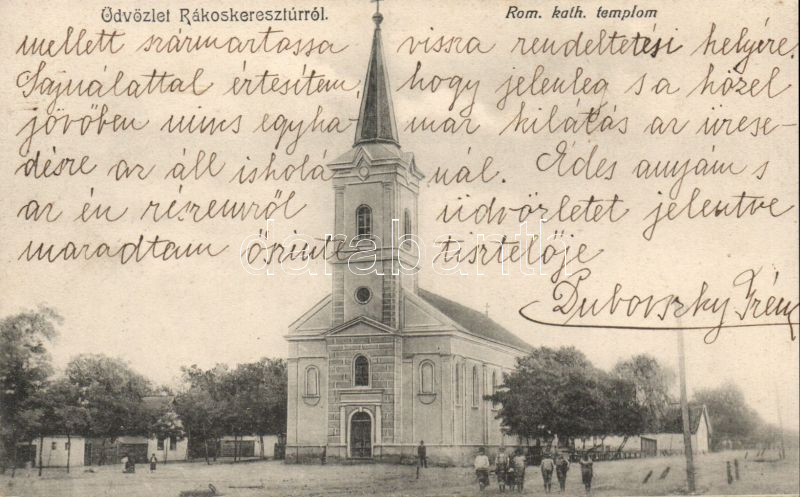 Üdvözlet Rákoskeresztúrról.
Rom. kath. templom
mellett szármartassa vissza rendeltetési helyére.
Sajnálattal értesítem, hogy jelenleg s a közel
jövőben nins egyhamar kilátás az üresedésre
az áll iskolánál. Édes anyám s
az én részemről üdvözletet jelentve
maradtam őszinte tisztelője
Dubovszky Irén
darabanth.com